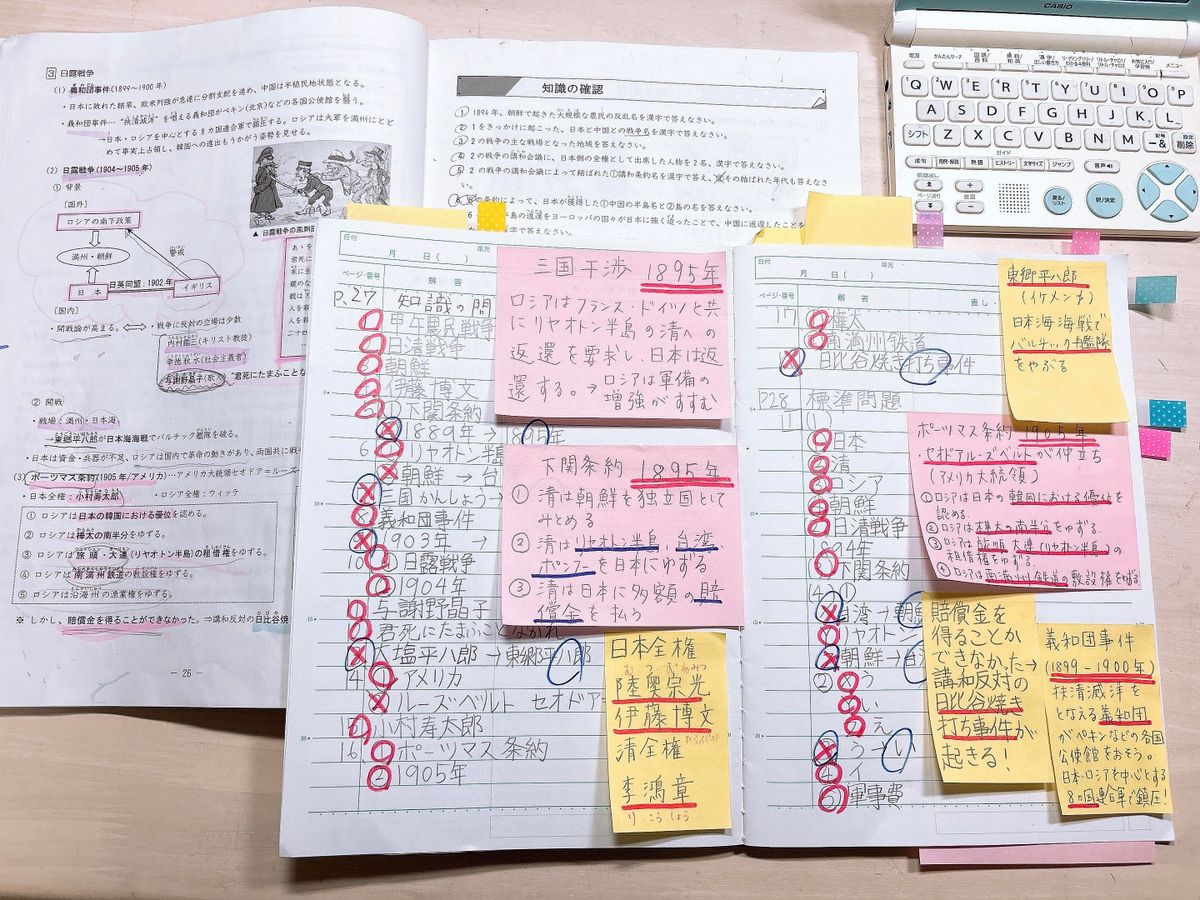 3 日露戦争
(1) 義和団事件(1899～1900年)
・日本に敗れた結果、欧米列強が急速に分割支配を進め、中国は半植民地状態となる。
・義和団事件…“扶清滅洋”を唱える義和団がペキン(北京)などの各国公使館を襲う。
→日本・ロシアを中心とする8カ国連合軍で鎮圧する。ロシアは大軍を満州にとど
めて事実上占領し、韓国への進出もうかがう姿勢を見せる。
(2) 日露戦争(1904～1905年)
① 背景
[国外]
ロシアの南下政策
警戒
満州・朝鮮
日英同盟:1902年
日本
イギリス
[国内]
・開戦論が高まる。
・戦争に反対の立場は少数
内村鑑三(キリスト教徒)
幸徳秋水(社会主義者)
与謝野晶子(歌人)
“君死にたまふことなか
② 開戦
・戦場:満州・日本海
→東郷平八郎が日本海海戦でバルチック艦隊を破る。
・日本は資金・兵器が不足、ロシアは国内で革命の動きがあり、両国共に戦
(3) ポーツマス条約(1905年/アメリカ)…アメリカ大統領セオドア=ルーズ
・日本全権:小村寿太郎
・ロシア全権:ウィッテ
① ロシアは日本の韓国における優位を認める。
② ロシアは樺太の南半分をゆずる。
③ ロシアは旅順・大連(リャオトン半島)の租借権をゆずる。
④ ロシアは南満州鉄道の敷設権をゆずる。
⑤ ロシアは沿海州の漁業権をゆずる。
※ しかし、賠償金を得ることができなかった。⇒講和反対の日比谷焼
- 26 -
▲ 日露戦争の風刺画
知識の確認
① 1894年、朝鮮で起きた大規模な農民の反乱名を漢字で答えなさい。
② 1をきっかけに起こった、日本と中国との戦争名を漢字で答えなさい。
③ 2の戦争の主な戦場となった地域を答えなさい。
④ 2の戦争の講和会議に、日本側の全権として出席した人物を2名、漢字で答えなさい。
⑤ 2の戦争の講和会議によって結ばれた①講和条約名を漢字で答え、②その結ばれた年代も答えなさ
い。
の条約によって、日本が獲得した①中国の半島名と②島の名を答えなさい。
半島の返還をヨーロッパの国々が日本に強く迫ったことで、中国に返還したことを
字で答えなさい。
CASIO
Q W E R T Y U I O P
A S D F G H J K L
シフト Z X C V B N M
訳/決定
日付 月 日( ) 単元
ページ・番号 解答
P.27 知識の問
甲午農民戦争
日清戦争
朝鮮
伊藤博文
下関条約
1889年→1895年
リャオトン半島
朝鮮→台
三国かんしょう→
義和団事件
1903年→
10 ①日露戦争
1904年
与謝野晶子
君死にたまふことなかれ
大塩平八郎→東郷平八郎
14 アメリカ
ルーズベルト セオドア
15 小村寿太郎
16 ポーツマス条約
② 1905年
三国干渉 1895年
ロシアはフランス・ドイツと共
にリヤオトン半島の清への
返還を要求し日本は返
還する。→ロシアは軍備の
増強がすすむ
下関条約 1895年
① 清は朝鮮を独立国として
みとめる
② 清はリヤオトン半島、台湾
ポンフーを日本にゆずる
③ 清は日本に多額の賠
償金を払う
日本全権
陸奥宗光
伊藤博文
清全権
李鴻章
りこうしょう
日付 月 日( ) 単元
ページ・番号 解答 直し
17 樺太
南満州鉄道
日比谷焼き打ち
P28 標準問題
日本
清
ロシア
朝鮮
日清戦争
下関条約
台湾→朝
リャオトン
朝鮮→台
う
い
え
う→い
イ
軍事費
東郷平八郎
(イケメンメ)
日本海海戦で
バルチック艦隊
をやぶる
ポーツマス条約 1905年
・セオドアルーズベルトが仲立ち
(アメリカ大統領)
①ロシアは日本の韓国における優位を
認める.
②ロシアは樺太の南半分をゆずる.
③ロシアは旅順 大連(リャオトン半島)の
租借権をゆずる.
④ロシアは南満州鉄道の敷設権をゆずる
賠償金を
得ることが
できなかった→
講和反対の
日比谷焼き
打ち事件が
起きる!
義和団事件
(1899-1900年)
扶清滅洋を
となえる義和団
がペキンなどの各国
公使館をおそう.
日本・ロシアを中心とする
8カ国連合軍で鎮圧!